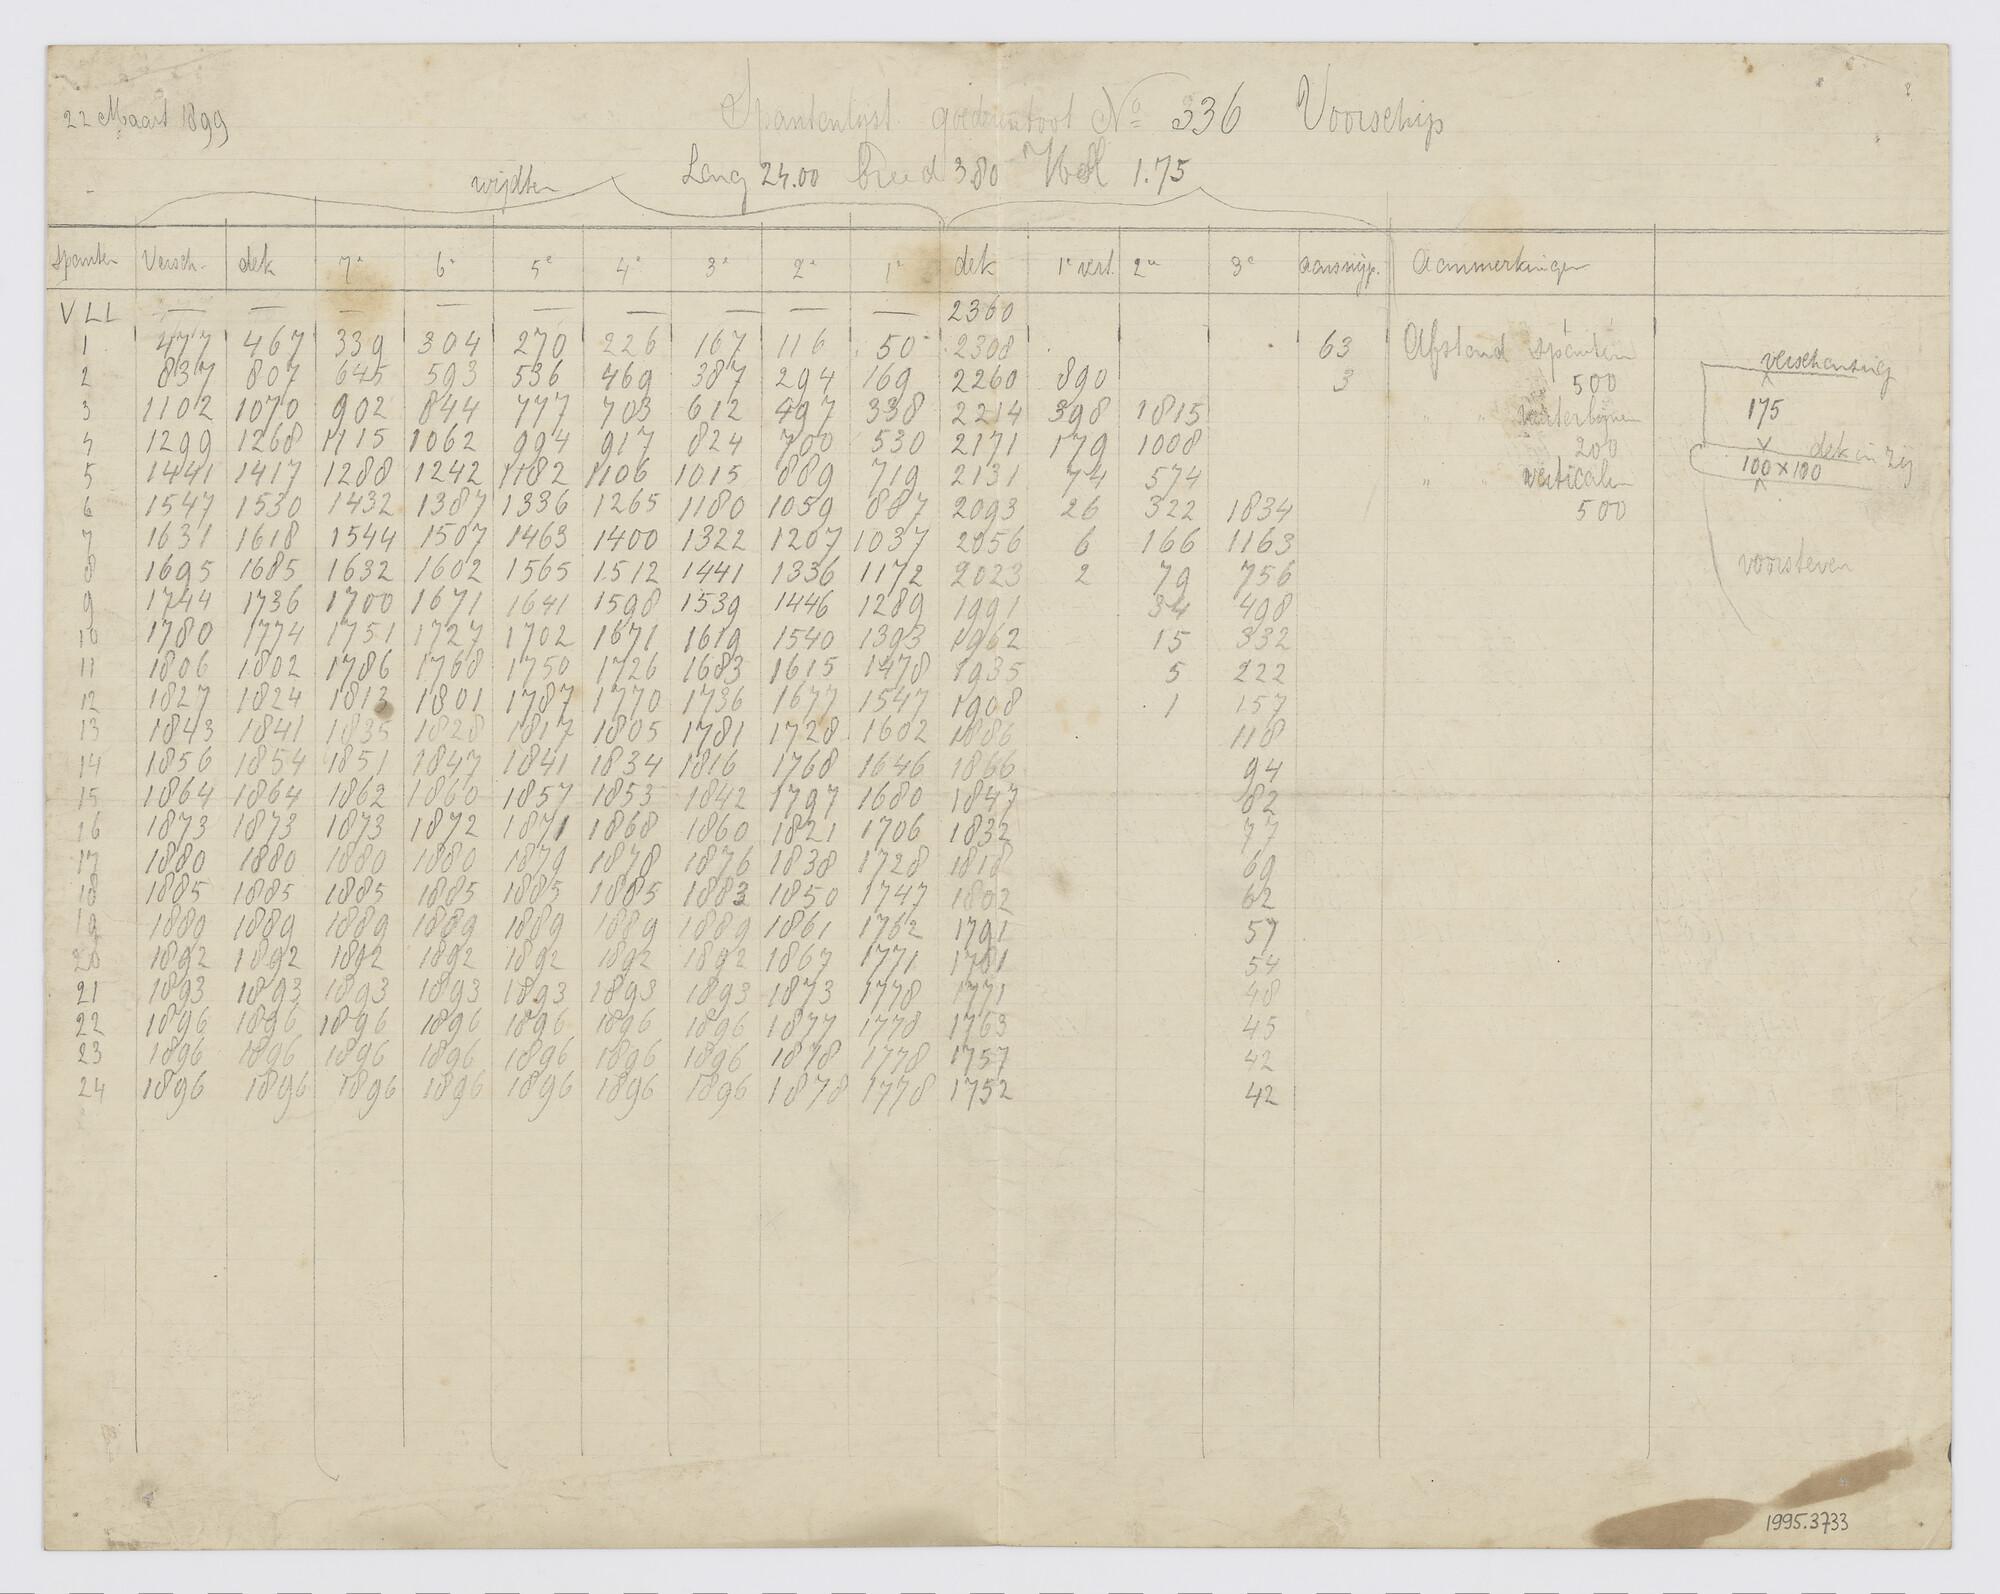 22 Maart 1899
Spantenlijst goederenboot No 336 Voorschip
wijdten Lang 24.00 breed 3.80 Hol 1.75
Spanten Versch. dek 7e 6e 5e 4e 3e 2e 1e dek 1e vert. 2e 3e aansnijp. Aanmerkingen
V L L — — — — — — — — — 2360
1 477 467 339 304 270 226 167 116 50 2308 63 Afstand spanten
2 837 807 645 593 536 469 387 294 169 2260 890 3 500
3 1102 1070 902 844 777 703 612 497 338 2214 398 1815 " " waterlijnen
4 1299 1268 1115 1062 994 917 824 700 530 2171 179 1008 200
5 1441 1417 1288 1242 1182 1106 1015 889 719 2131 74 574 " " verticalen
6 1547 1530 1432 1387 1336 1265 1180 1059 887 2093 26 322 1834 500
7 1631 1618 1544 1507 1463 1400 1322 1207 1037 2056 6 166 1163
8 1695 1685 1632 1602 1565 1512 1441 1336 1172 2023 2 79 756
9 1744 1736 1700 1671 1641 1598 1539 1446 1289 1991 34 498
10 1780 1774 1751 1727 1702 1671 1619 1540 1393 1962 15 332
11 1806 1802 1786 1768 1750 1726 1683 1615 1478 1935 5 222
12 1827 1824 1813 1801 1787 1770 1736 1677 1547 1908 1 157
13 1843 1841 1835 1828 1817 1805 1781 1728 1602 1886 118
14 1856 1854 1851 1847 1841 1834 1816 1768 1646 1866 94
15 1864 1864 1862 1860 1857 1853 1842 1797 1680 1847 82
16 1873 1873 1873 1872 1871 1868 1860 1821 1706 1832 77
17 1880 1880 1880 1880 1879 1878 1876 1838 1728 1818 69
18 1885 1885 1885 1885 1885 1885 1883 1850 1747 1802 62
19 1889 1889 1889 1889 1889 1889 1889 1861 1762 1791 57
20 1892 1892 1892 1892 1892 1892 1892 1867 1771 1781 54
21 1893 1893 1893 1893 1893 1893 1893 1873 1778 1771 48
22 1896 1896 1896 1896 1896 1896 1896 1877 1778 1763 45
23 1896 1896 1896 1896 1896 1896 1896 1878 1778 1757 42
24 1896 1896 1896 1896 1896 1896 1896 1878 1778 1752 42
verschansing
175
dek in zij
100 x 100
voorsteven
1995.3733